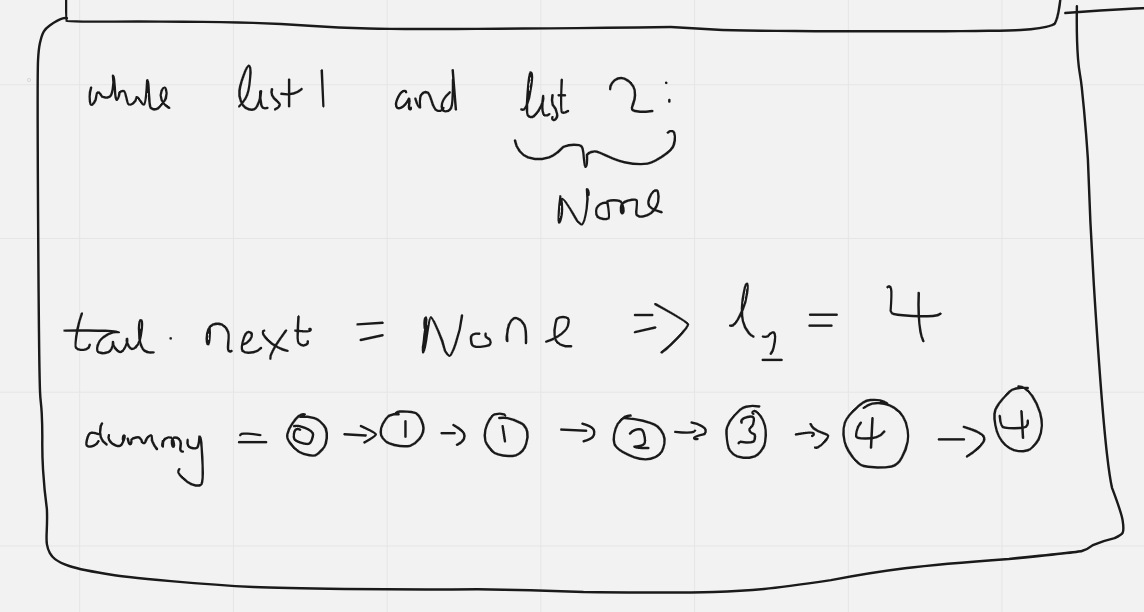 while list1 and list 2:
None
tail. next = None => l₂ = 4
dummy = 0 → 1 → 1 → 2 → 3 → 4 → 4